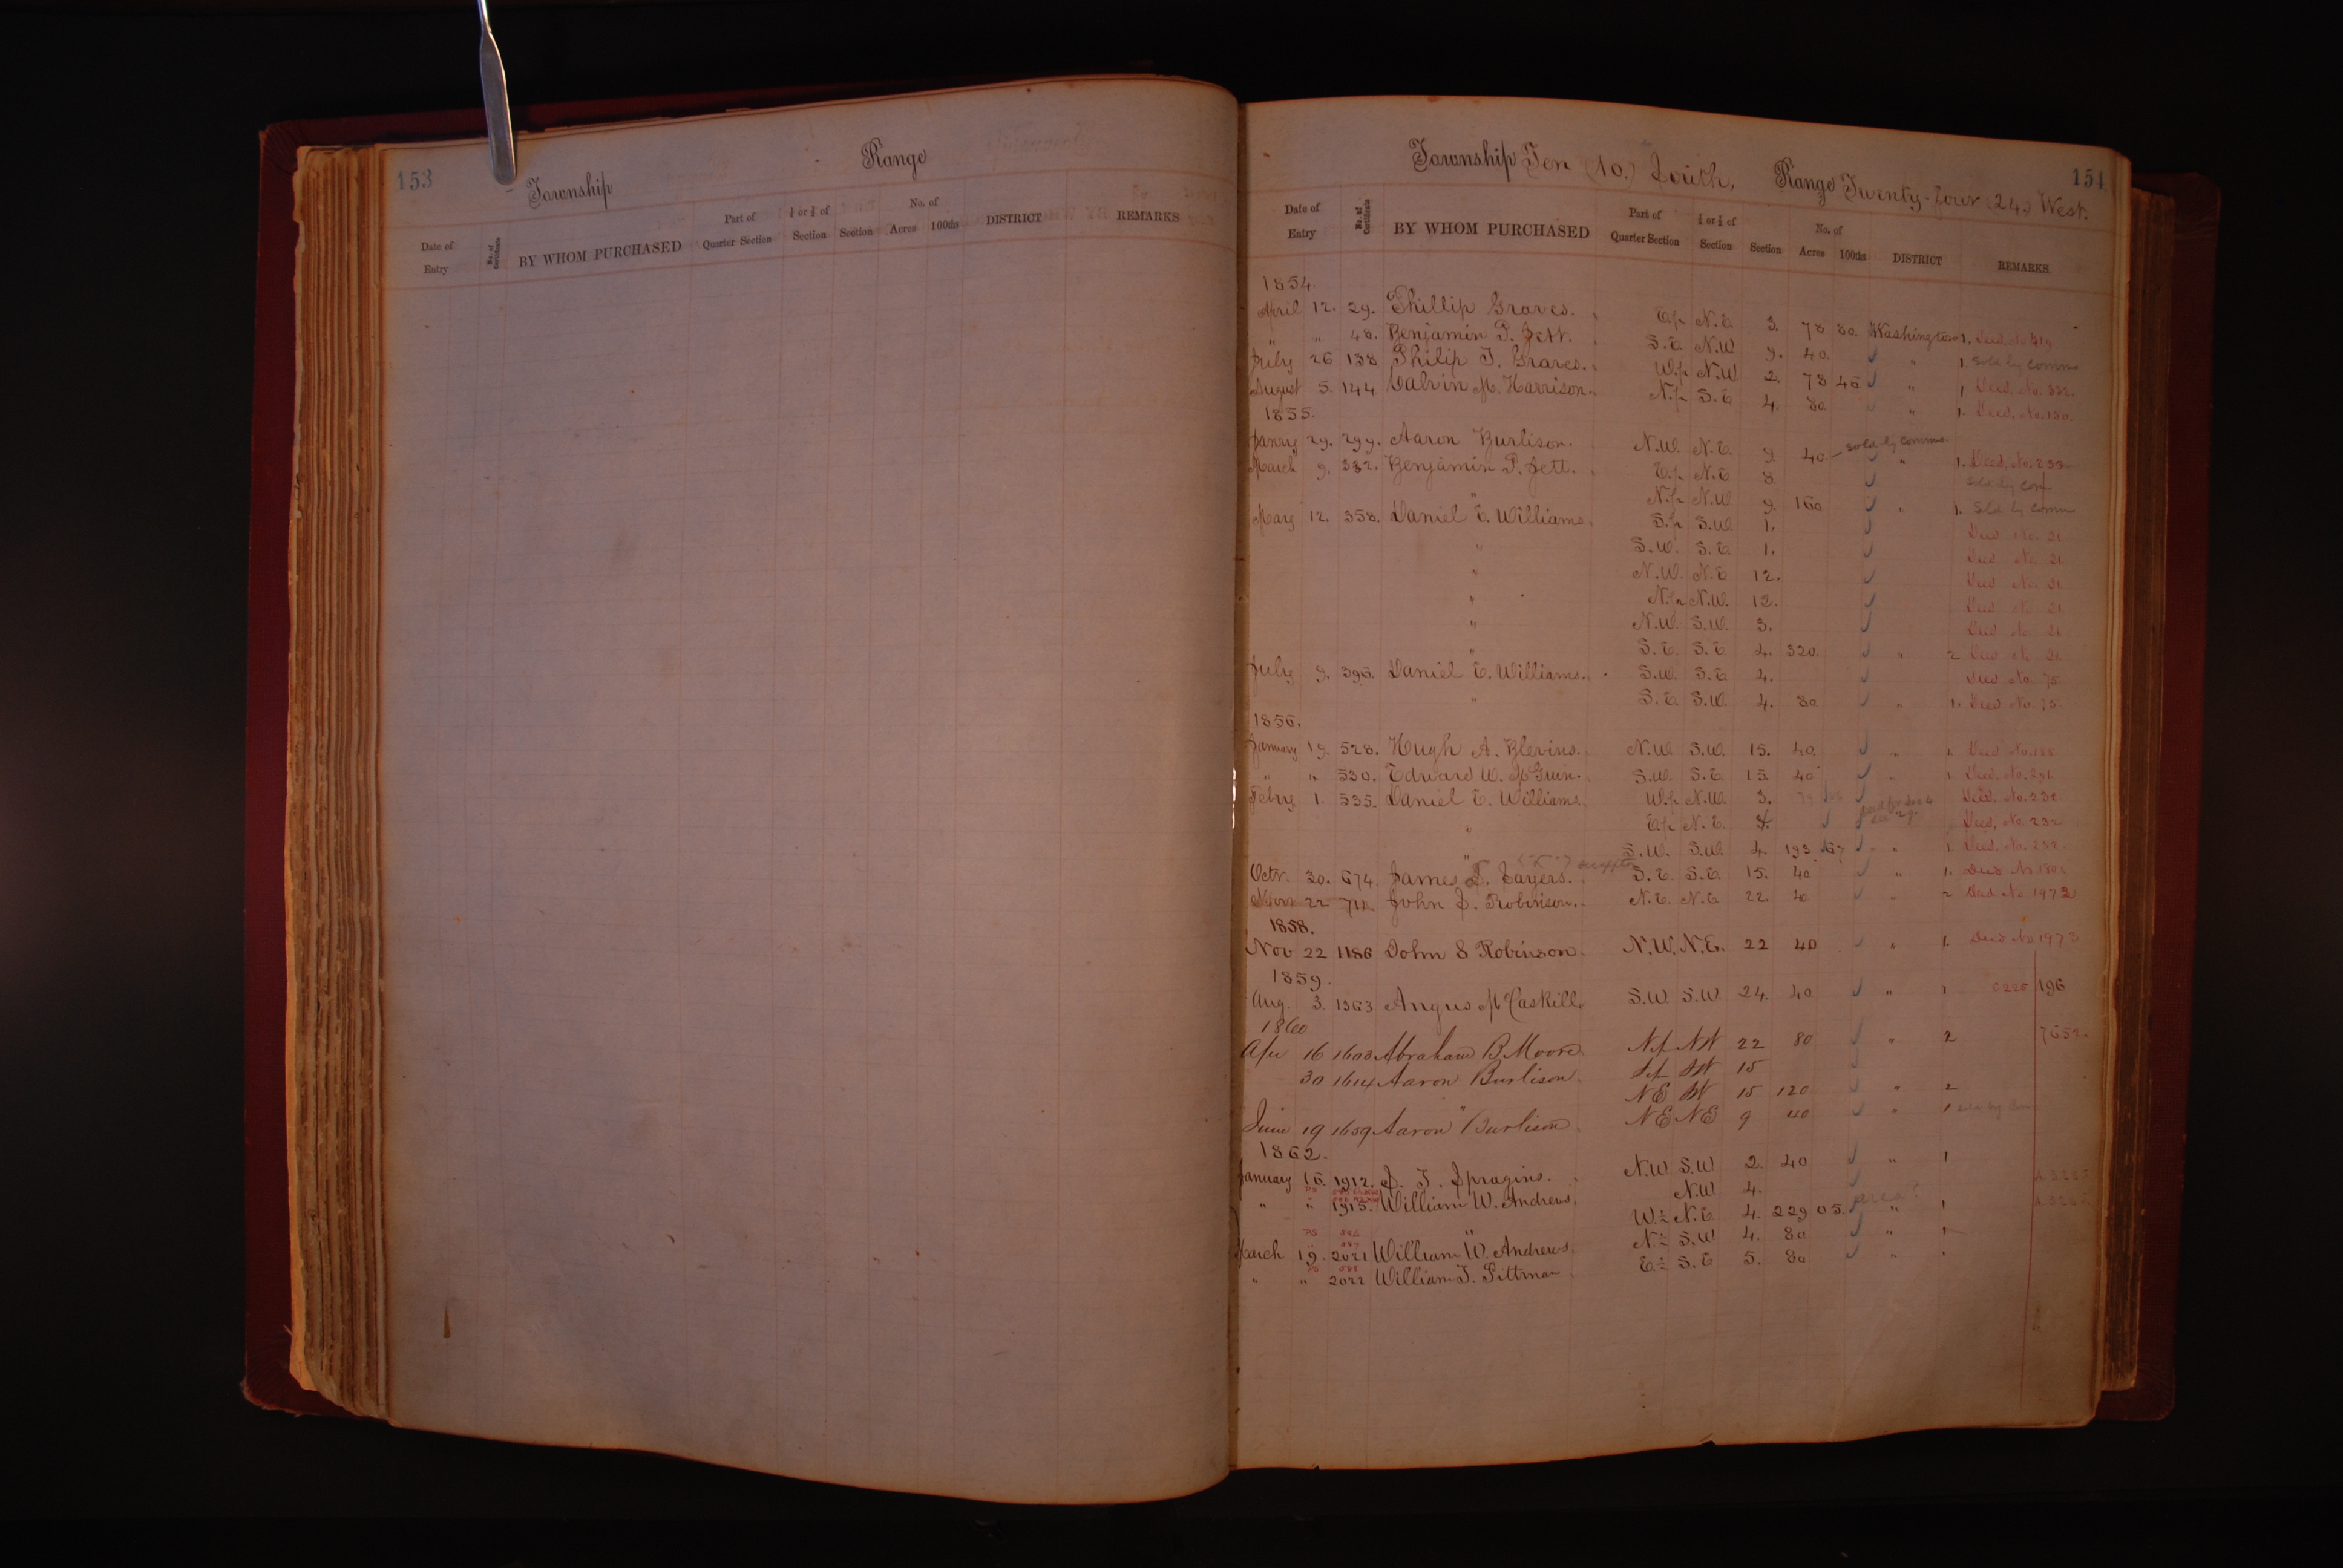 153
Township Range
Date of Entry No. of Certificate BY WHOM PURCHASED Part of Quarter Section ½ or ¼ of Section Section No. of Acres 100ths DISTRICT REMARKS
154
Township Ten (10.) South, Range Twenty-four (24.) West.
Date of Entry No. of Certificate BY WHOM PURCHASED Part of Quarter Section ½ or ¼ of Section Section No. of Acres 100ths DISTRICT REMARKS.
1854.
April 12. 29. Phillip Graves. E½ N.E 3. 78 80 Washington 1. Deed, No 419
" " 48. Benjamin P. Jett. S.E N.W 9. 40. " 1. Sold by Comms
July 26 138 Philip T. Graves. W.½ N.W 2. 78 46 " 1 Deed, No. 332.
August 5. 144 Calvin M. Harrison. N.½ S.E 4. 80 " 1. Deed, No. 180.
1855.
Janry 29. 299. Aaron Burlison. N.W. N.E. 9 40 sold by Comms " 1. Deed, No. 233
March 9. 332. Benjamin P. Jett. E.½ N.E 8 Sold by Com
" N.½ N.W 9. 160 " 1. Sold by Comm
May 12. 358. Daniel E. Williams. S.½ S.W. 1. Deed No. 21
" S.W. S.E. 1. Deed No. 21
" N.W. N.E 12. Deed No. 21
" N.½ N.W. 12. Deed No 21
" N.W. S.W. 3. Deed No 21
" S.E. S.E. 4. 320. " 2 Deed No 21.
July 9. 396. Daniel E. Williams. S.W. S.E 4. Deed No. 75
" S.E. S.W. 4. 80 " 1. Deed No. 75
1856.
January 19. 528. Hugh A. Blevins. N.W. S.W. 15. 40 " 1. Deed No. 188
" " 530. Edward W. McGuin. S.W. S.E 15. 40 " 1 Deed, No. 251.
Febry 1. 535. Daniel E. Williams. W.½ N.W. 3. Deed, No. 232
" E½ N.E. 4. Deed, No. 232
" S.W. S.W. 4 193 67 " 1 Deed, No. 232
Octr. 30. 674. James Z. Sayers. S.E. S.E. 15. 40 " 1. Deed No 1801
Novr 22 711 John S. Robinson. N.E. N.E 22. 40 " 2 Deed No 1972
1858.
Nov 22 1186 John S Robinson. N.W. N.E. 22 40 " 1. Deed No 1973
1859.
Aug. 3. 1363 Angus McCaskill S.W. S.W. 24. 40 " 1 196
1860
Apr 16 1603 Abraham B Moore N½ NW 22 80 " 2 7652.
30 1614 Aaron Burlison S½ SW 15
" NE SW 15 120 " 2
June 19 1659 Aaron Burlison NE NE 9 40 " 1
1862.
January 16. 1912. S. T. Spragins. N.W. S.W 2. 40 " 1
" " 1915. William W. Andrews. N.W 4.
" W.½ N.E 4. 229 05. " 1
March 19. 2021 William W. Andrews. N.½ S.W 4. 80 " 1
" " 2022 William T. Pittman E.½ S.E 5. 80 " 1